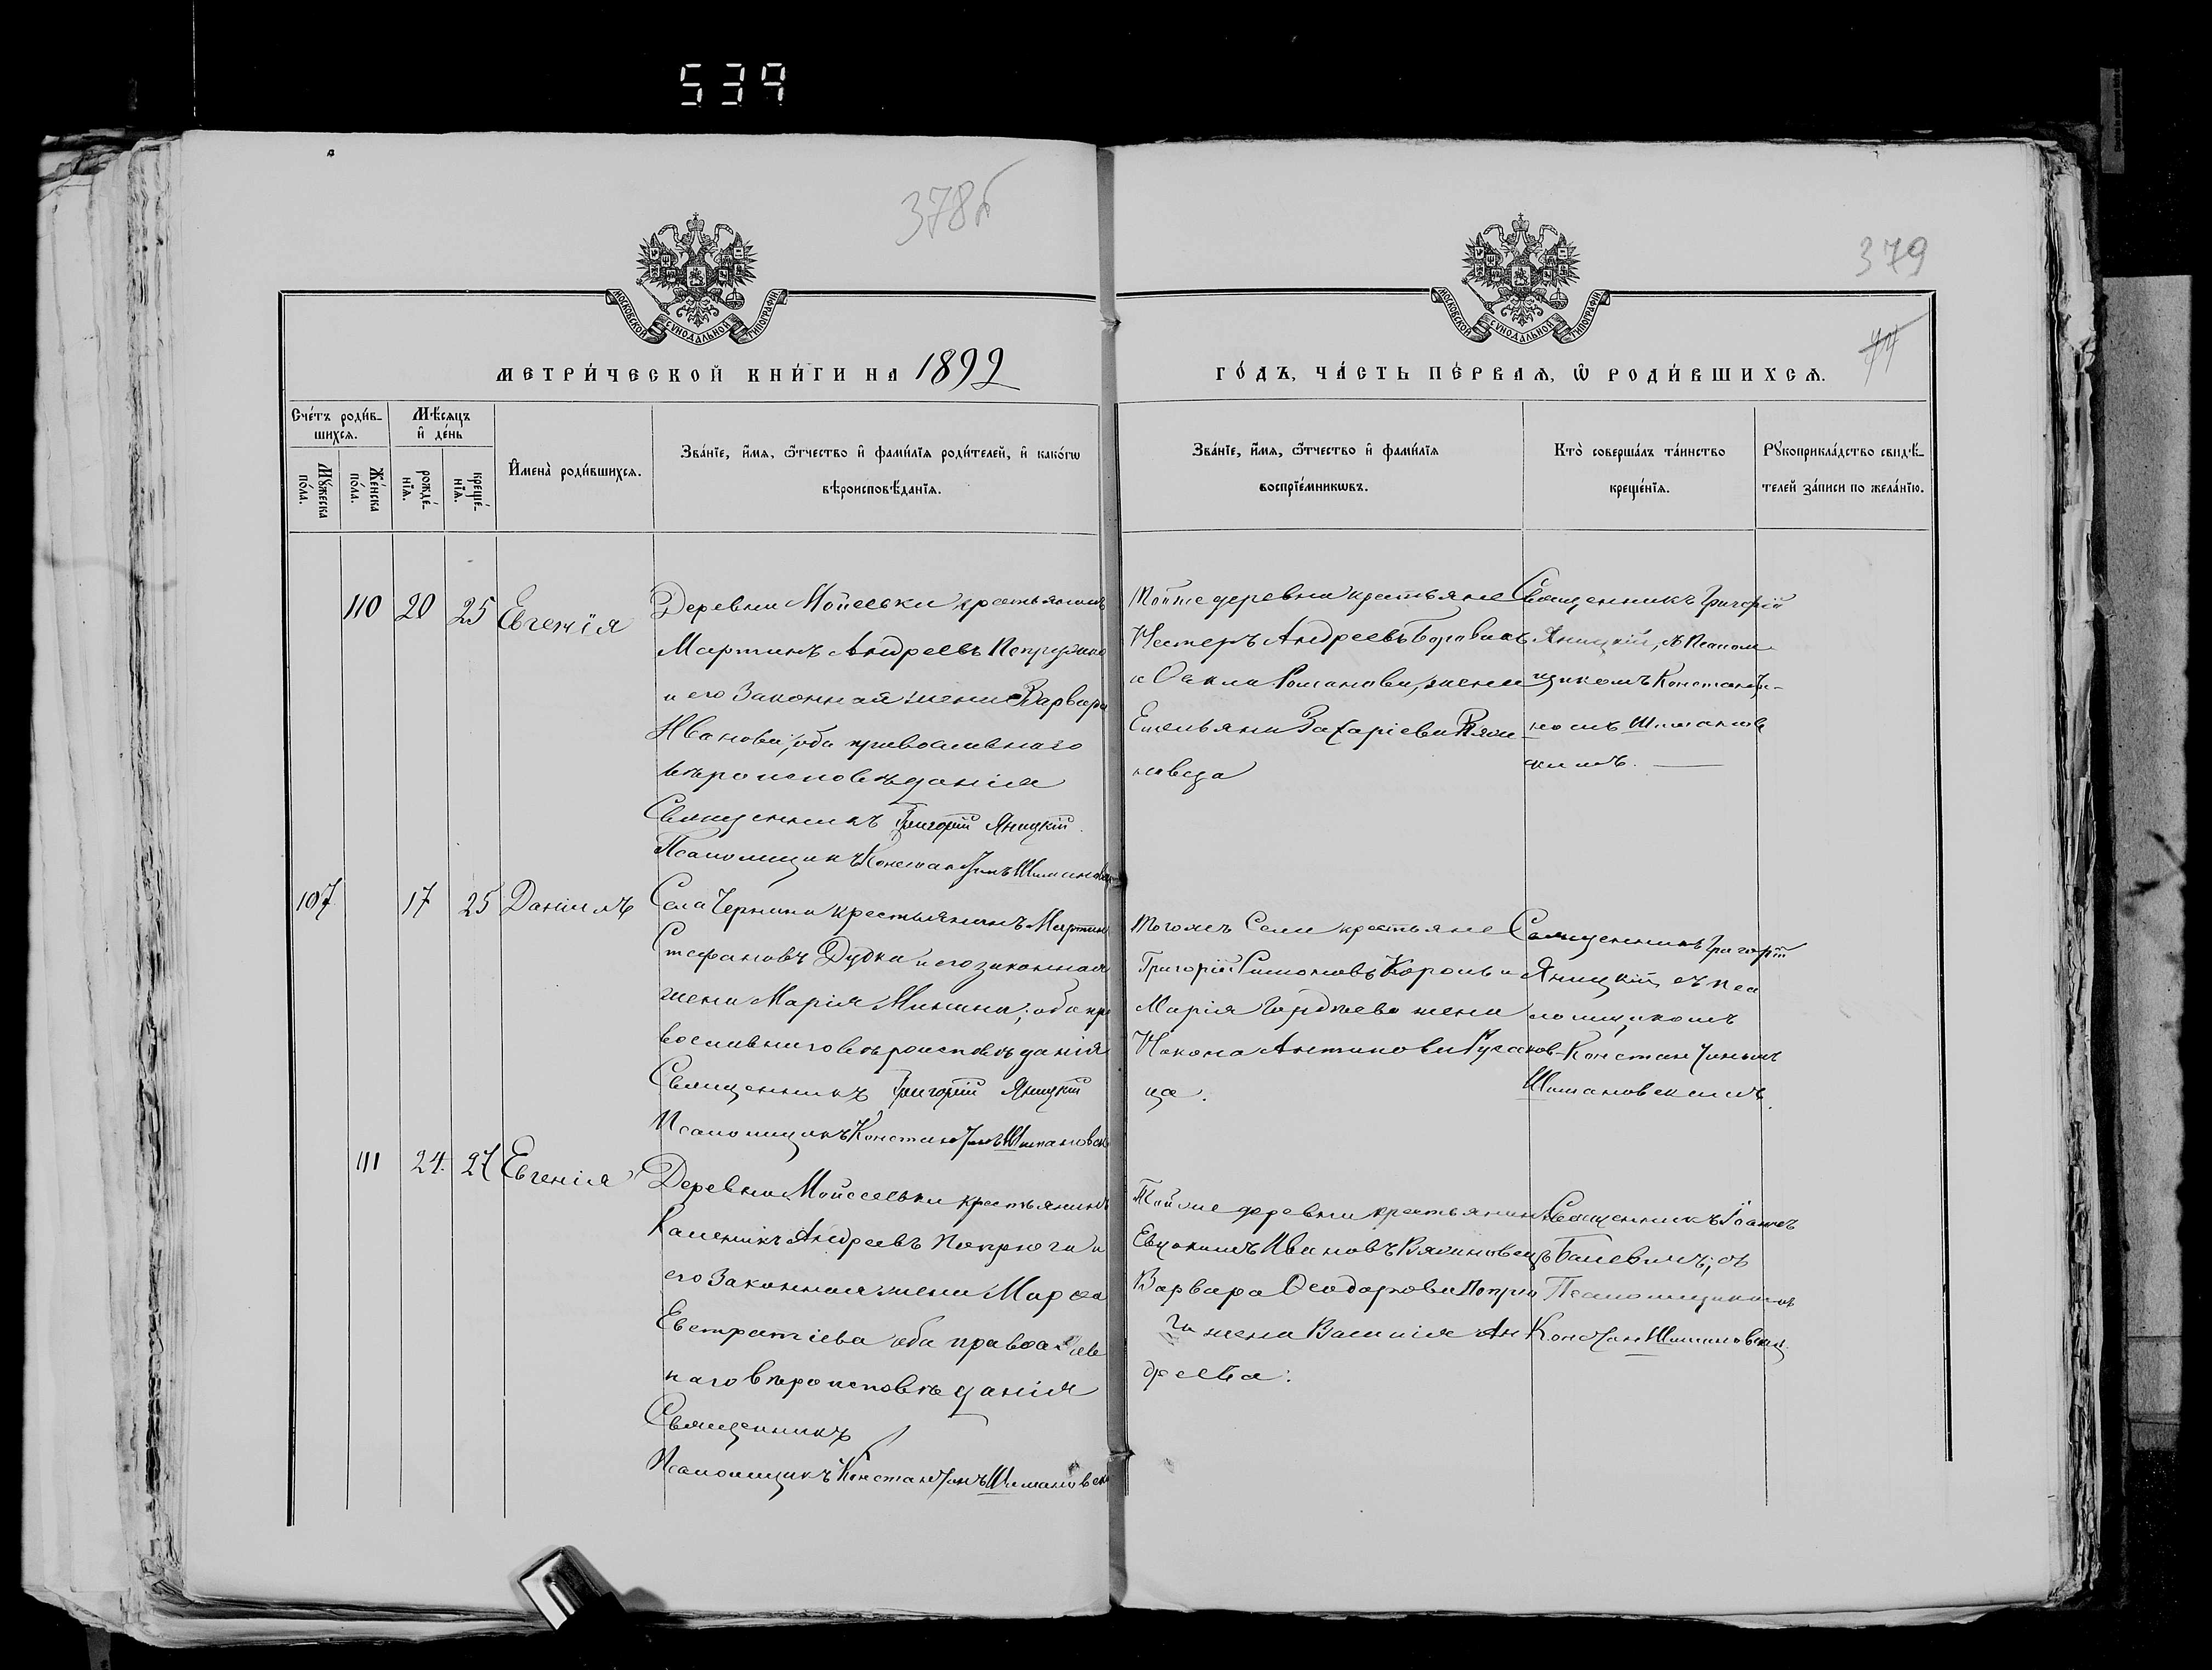 539
378б
379
МОСКОВСКОЙ СѴНОДАЛЬНОЙ ТИПОГРАФІИ
МОСКОВСКОЙ СѴНОДАЛЬНОЙ ТИПОГРАФІИ
МЕТРИ́ЧЕСКОЙ КНИ́ГИ НА 1892
ГО́ДЪ, ЧА́СТЬ ПЕ́РВАЯ, Ѡ҆ РОДИ́ВШИХСЯ.
Сче́тъ роди́в-
шихся.
Мѣ́сяцъ
и҆ де́нь
Мꙋ́жеска
по́ла.
Же́нска
по́ла.
рожде́-
нїя.
креще́-
нїя.
И҆мена̀ роди́вшихся.
Зва́нїе, и҆́мя, ѻ҆́тчество и҆ фами́лїя роди́телей, и҆ како́гѡ
вѣроисповѣ́данїя.
Зва́нїе, и҆́мя, ѻ҆́тчество и҆ фами́лїя
воспрїе́мникѡвъ.
Кто̀ соверша́лъ та́инство
креще́нїя.
Рꙋкоприкла́дство свидѣ́-
телей за́писи по жела́нїю.
110 20 25 Евгенія
Деревни Мойсевки крестьянинъ
Мартинъ Андреевъ
и его законная жена Варвара
Иванова, оба православнаго
вѣроисповѣданія
Священникъ Григорій Яницкій
Псаломщикъ Константинъ
Тойже деревни крестьяне
Нестеръ Андреевъ
и Ѳекла Романова, жена
Емельяна Захаріева
Священникъ Григорій
Яницкій, съ Псалом-
щикомъ Константи-
номъ
скимъ.
107 17 25 Даніилъ
Села Чернина крестьянинъ Мартинъ
Стефановъ Дудка и его законная
жена Марія Минина; оба пра
вославнаго вѣроисповѣданія
Священникъ Григорій Яницкій
Псаломщикъ Константинъ
Тогожъ Села крестьяне
Григорій Симоновъ Король и
Марія Гордѣева жена
Никона Антипова Русанов-
ца.
Священникъ Григорій
Яницкій, съ пса
ломщикомъ
Константиномъ
Шимановскимъ.
111 24. 27 Евгенія
Деревни Мойсеевки крестьянинъ
Андреевъ Попруга и
его законная жена Марѳа
Евстратіева оба православ
наго вѣроисповѣданія
Священникъ
Псаломщикъ Константинъ
Тойже деревни крестьянинъ
Евдокимъ Ивановъ
Варвара Ѳеодорова Попру
га жена Василія Ан
дреева.
Священникъ Іоаннъ
съ
Псаломщикомъ